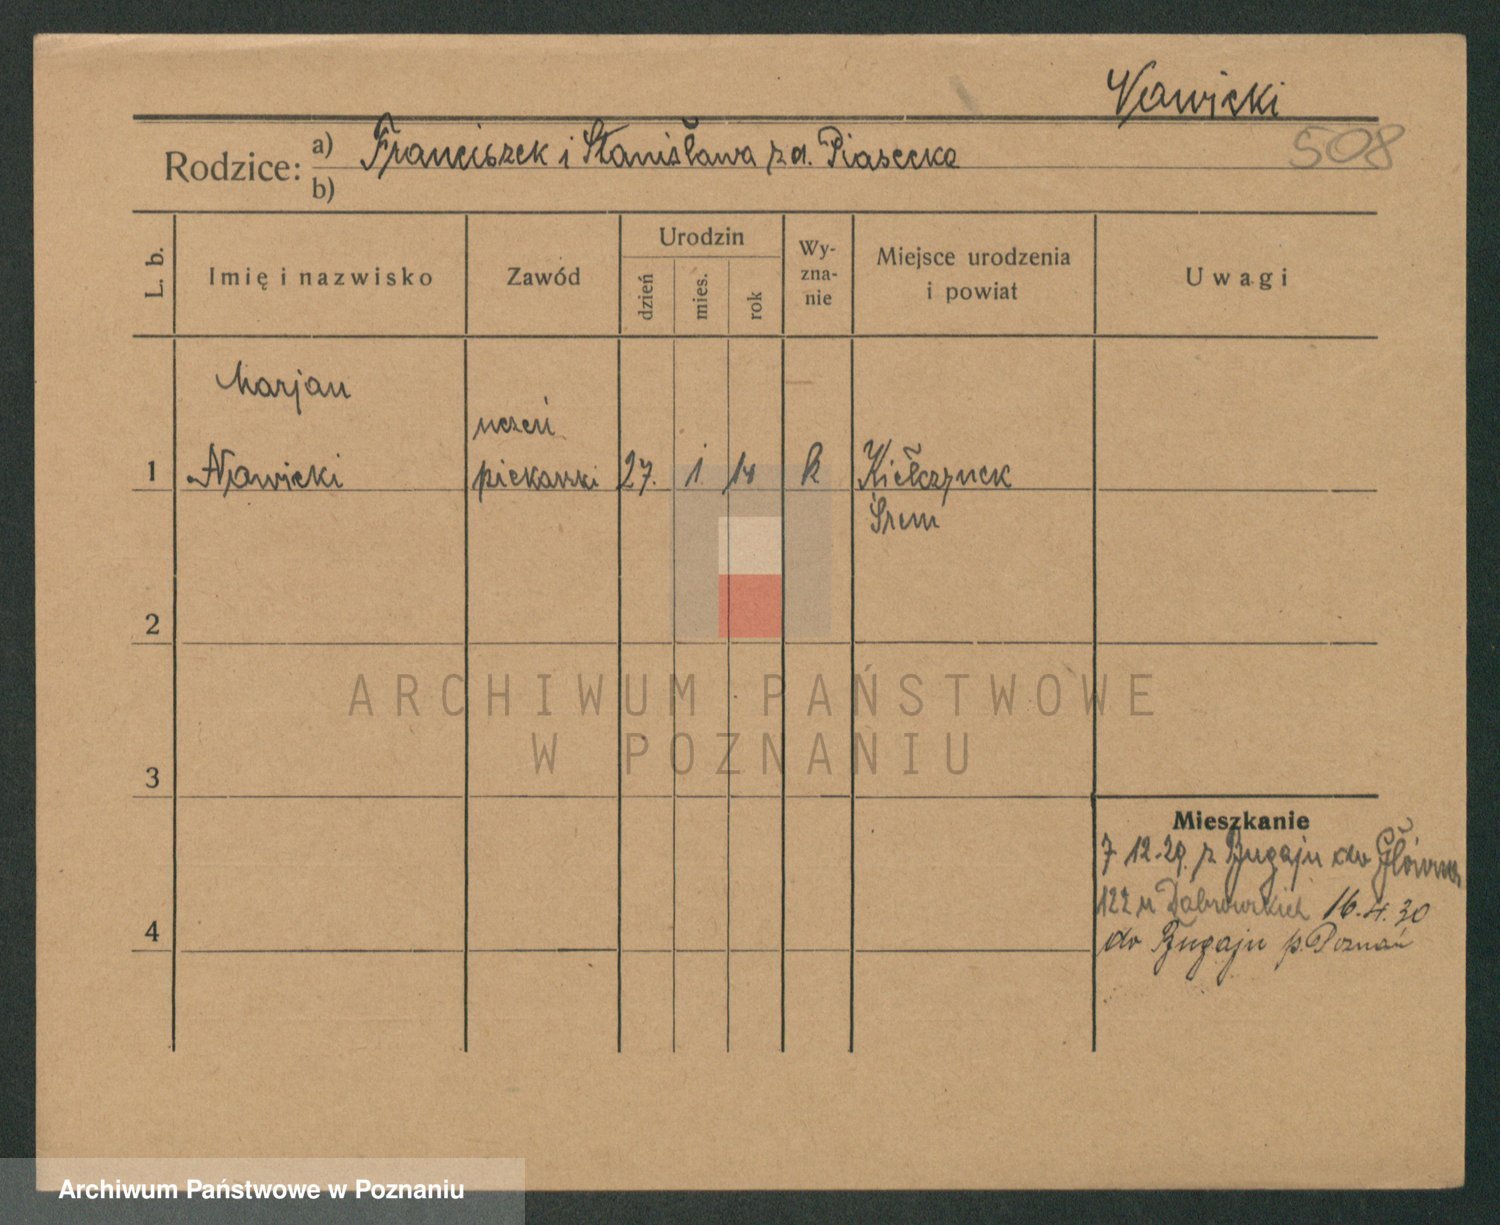 Nawicki
508
Rodzice: a) Franciszek i Stanisława z d. Piasecka
b)
L. b.
Imię i nazwisko
Zawód
Urodzin
dzień
mies.
rok
Wy-
zna-
nie
Miejsce urodzenia
i powiat
Uwagi
Marjan
uczeń
1 Nawicki piekarski 27. 1 14 k Kiełczynek
Śrem
2
ARCHIWUM PAŃSTWOWE
W POZNANIU
3
Mieszkanie
7 12.29. z Bugaju do Główna
122 u Dąbrowskich 16.4.30
4
do Bugaju p. Poznań
Archiwum Państwowe w Poznaniu